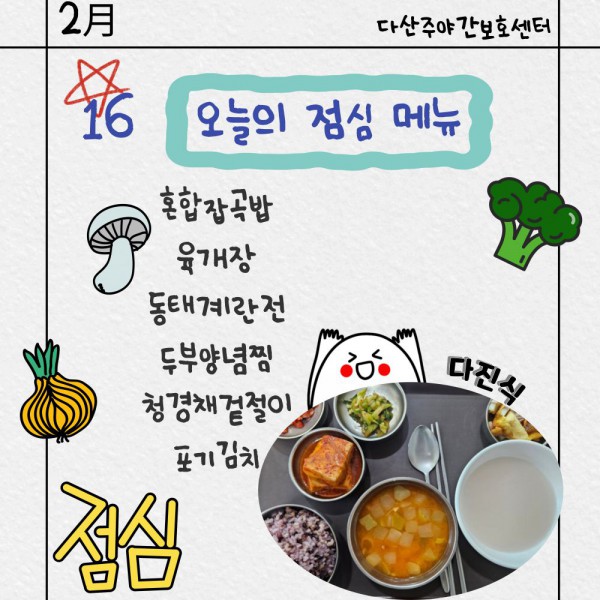 2月
다산주야간보호센터
16
오늘의 점심 메뉴
혼합잡곡밥
육개장
동태계란전
두부양념찜
청경채겉절이
포기김치
다진식
점심